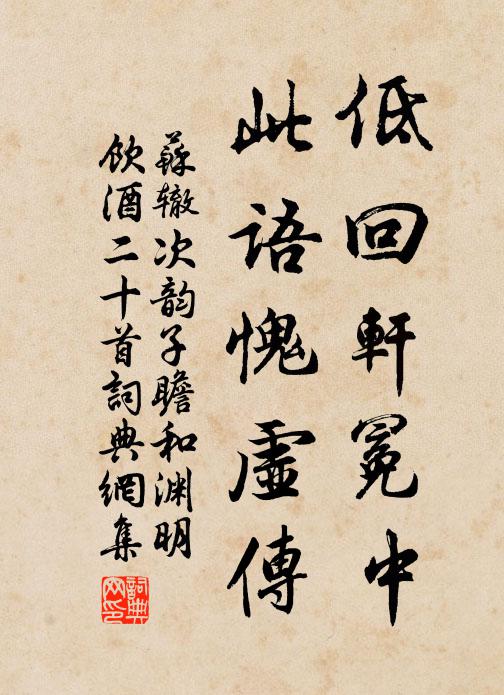 低回軒冕中
此語愧虛傳
蘇辙次韵子瞻和渊明
飲酒二十首詞典網集
詞典
网印